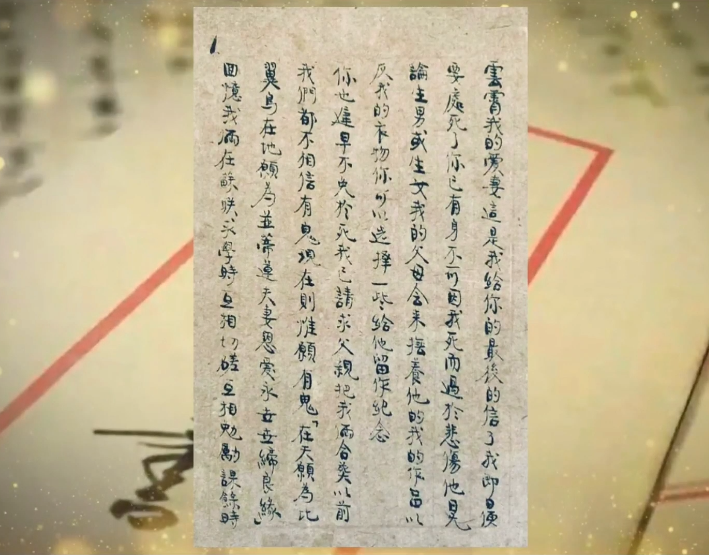 雲霄我的愛妻這是我給你的最後的信了我即日便
要處死了你已有身不可因我死而過於悲傷他日
論生男或生女我的父母會來撫養他的我的作品以
及我的衣物你可以选擇一些給他留作紀念
你也遲早不免於死我已請求父親把我倆合葬以前
我們都不相信有鬼現在則惟願有鬼「在天願為比
翼鳥在地願為並蒂蓮夫妻恩爱永世世締良緣」
回憶我倆在蘇联求學時互相切磋互相勉勵課餘時